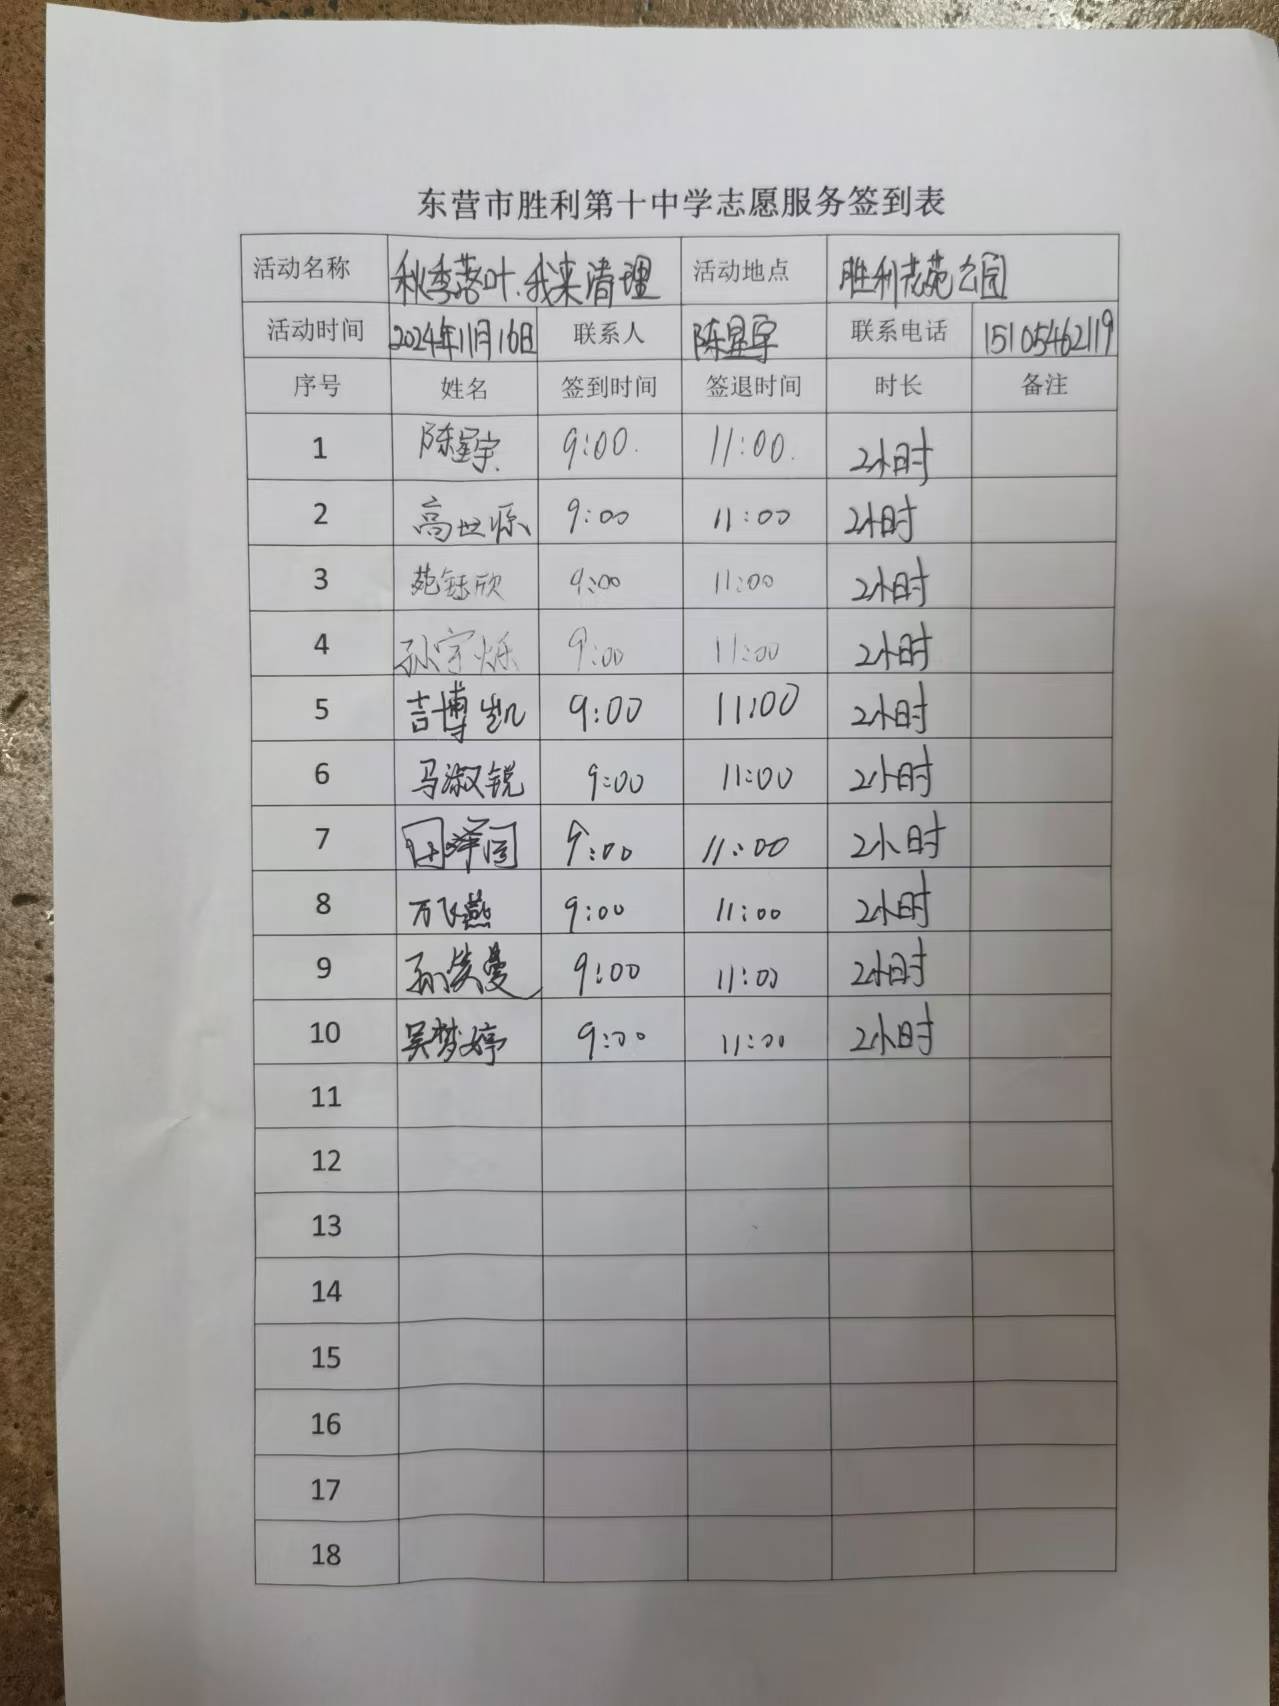 东营市胜利第十中学志愿服务签到表
活动名称 秋季落叶.我来清理 活动地点 胜利花苑公园
活动时间 2024年11月16日 联系人 陈星宇 联系电话 15105462119
序号 姓名 签到时间 签退时间 时长 备注
1 陈星宇 9:00 11:00 2小时
2 高世烁 9:00 11:00 2小时
3 苑钰欣 9:00 11:00 2小时
4 孙宇烁 9:00 11:00 2小时
5 吉博凯 9:00 11:00 2小时
6 马淑锐 9:00 11:00 2小时
7 9:00 11:00 2小时
8 万飞燕 9:00 11:00 2小时
9 孙笑曼 9:00 11:00 2小时
10 吴梦婷 9:00 11:00 2小时
11
12
13
14
15
16
17
18